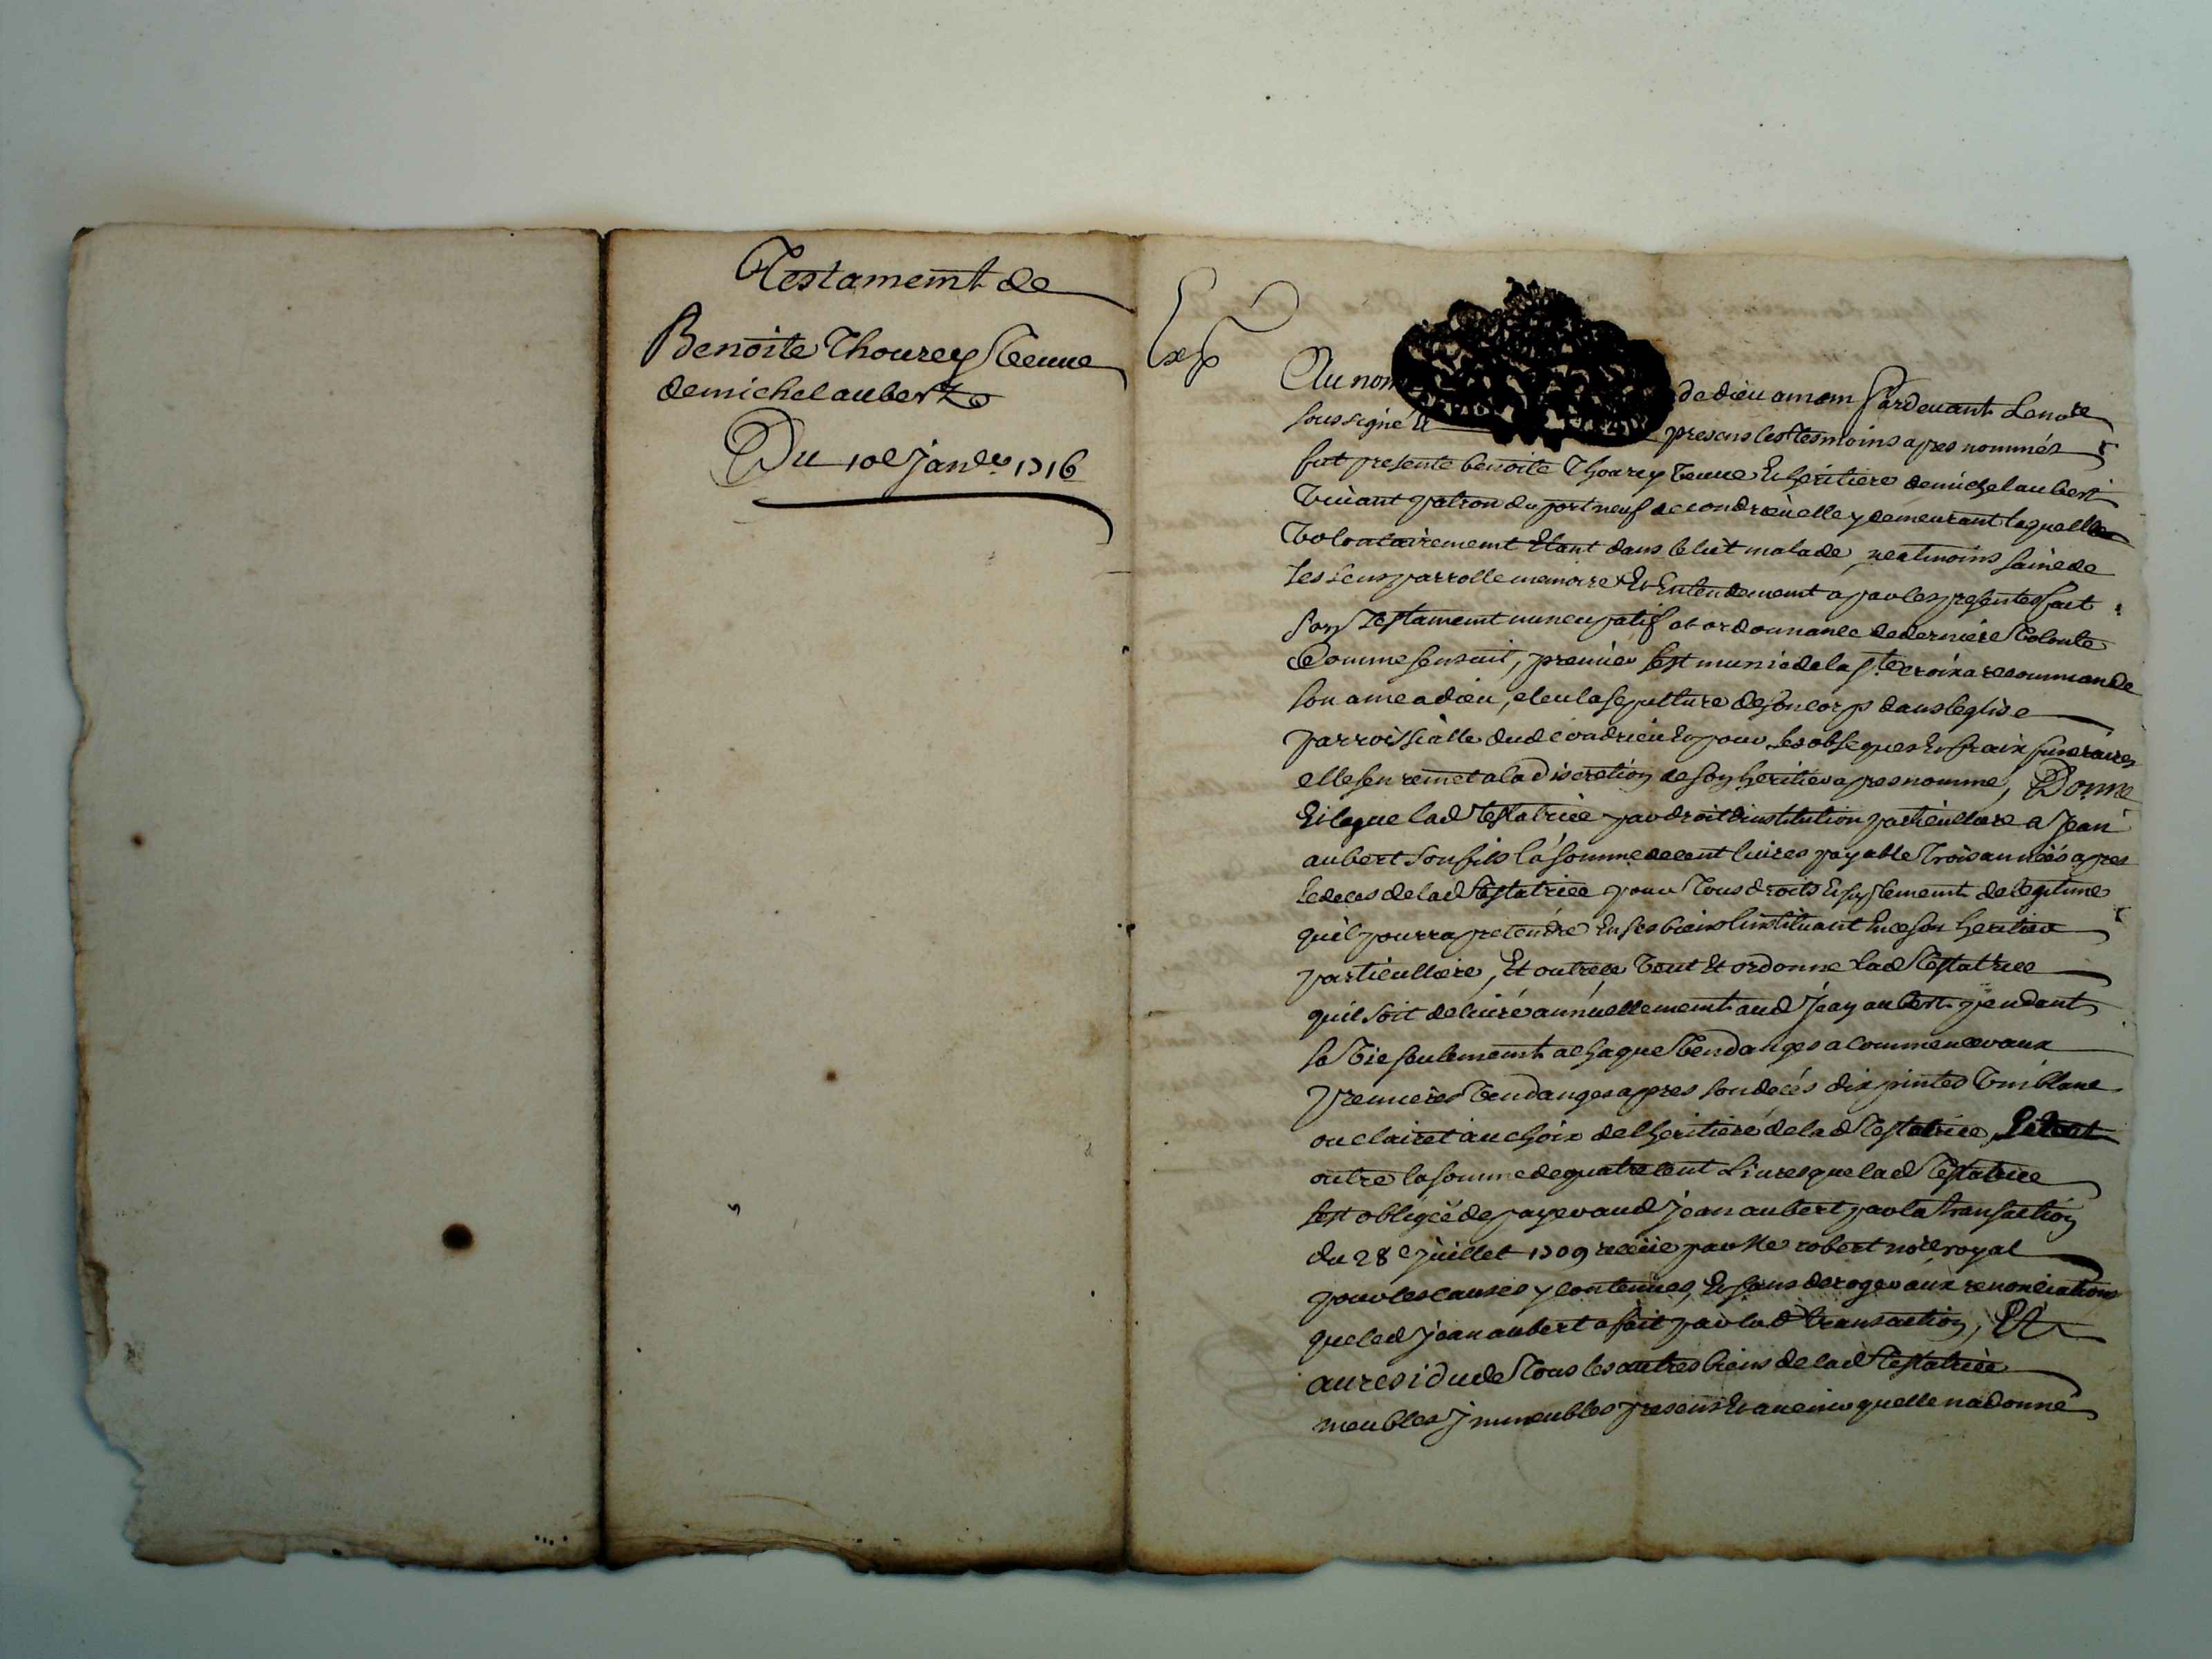 Testament de
Benoite Thourey veuue
de michel aubert
Du 10e Janer 1716
Exp
Au nom de dieu amen Pardeuant Le nore
soussigné Et presens les tesmoins apres nommés
fut presente benoite Thourey veuue Et heritiere de michel aubert
viuant patron du port neuf de condrieu elle y demeurant laquelle
volontairement Etant dans le lict malade neatmoins saine de
ses sens parrolle memoire Et Entendement a par les presentes fait
son Testament nuncupatif et ordonnance de derniere volonte
Comme sensuit, premier sest munie de la ste croix a recommande
son ame a dieu, eleu la sepulture de son corps dans leglise
parroissialle dud condrieu Et pour ses obseques Et fraix funeraires
elle sen remet a la discretion de son heritier apres nommé, Donne
Et legue lad Testatrice par droit dinstitution particulliere a Jean
aubert son fils la somme de cent liures payable trois années apres
le deces de lad Testatrice pour tous droits Et suplement de legitime
quil pourra pretendre En ses biens linstituant En ce son heritier
particulliere, Et outre ce veut Et ordonne lad Testatrice
quil soit deliuré annuellement aud Jean aubert pendant
sa vie seulement a chaque vendanges a commencer aux
premieres vendanges apres son decés dix pintes vin blanc
ou clairet au choix de lheritiere de lad Testatrice, Et tout
outre la somme de quatre cent Liures que lad Testatrice
sest obligée de payer aud Jean aubert par la transaction
du 28e juillet 1709 receüe par Me robert nore royal
pour les causes y contenües, Et sans deroger aux renonciations
que led Jean aubert a fait par lad transaction, Et
au residu de tous les autres biens de lad Testatrice
meubles Jmmeubles presens Et auenir quelle na donné